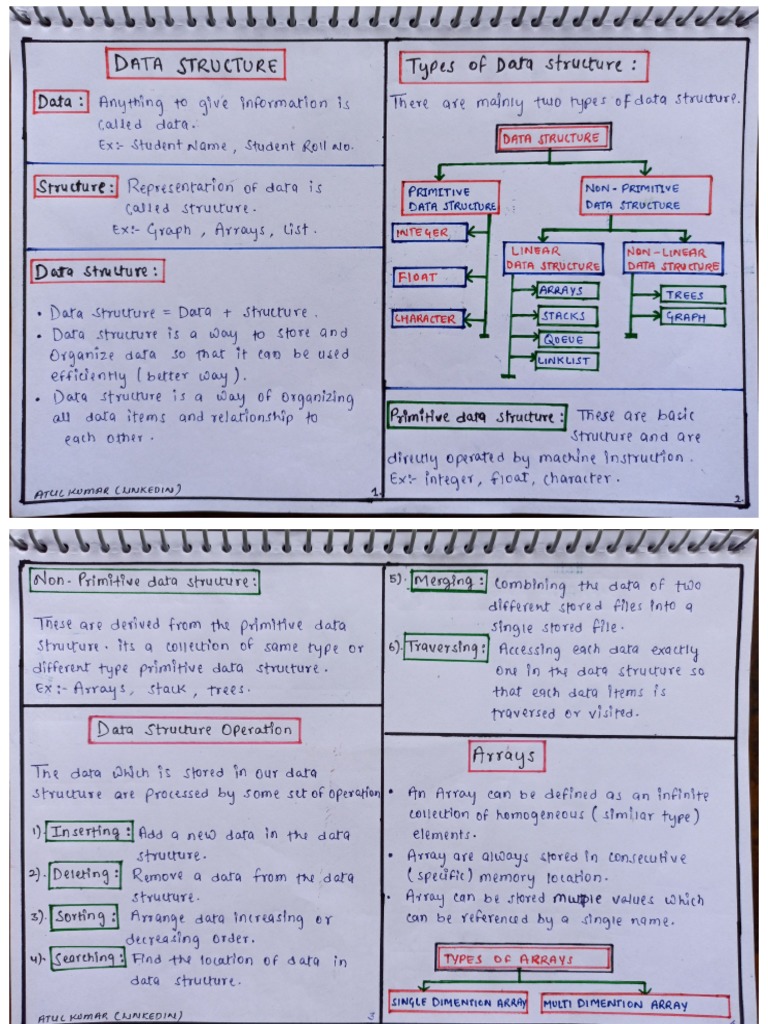 DATA STRUCTURE
Data : Anything to give information is
called data.
Ex:- Student Name , Student Roll No.
Structure : Representation of data is
called structure.
Ex:- Graph , Arrays , List .
Data structure :
• Data structure = Data + structure .
• Data structure is a way to store and
Organize data so that it can be used
efficiently ( better way ) .
• Data structure is a way of organizing
all data items and relationship to
each other .
ATUL KUMAR (LINKEDIN)
1.
Types of Data structure :
There are mainly two types of data structure.
DATA STRUCTURE
PRIMITIVE
DATA STRUCTURE
NON - PRIMITIVE
DATA STRUCTURE
INTEGER
FLOAT
CHARACTER
LINEAR
DATA STRUCTURE
ARRAYS
STACKS
QUEUE
LINKLIST
NON - LINEAR
DATA STRUCTURE
TREES
GRAPH
Primitive data structure : These are basic
structure and are
directly operated by machine instruction .
Ex:- integer, float, character .
2.
Non- Primitive data structure :
These are derived from the primitive data
structure . its a collection of same type or
different type primitive data structure .
Ex :- Arrays , stack , trees .
Data Structure Operation
The data which is stored in our data
structure are processed by some set of operation
1). Inserting : Add a new data in the data
structure .
2). Deleting : Remove a data from the data
structure .
3). Sorting : Arrange data increasing or
decreasing order .
4). Searching : Find the location of data in
data structure .
ATUL KUMAR (LINKEDIN)
3
5). Merging : Combining the data of two
different stored files into a
single stored file .
6). Traversing : Accessing each data exactly
one in the data structure so
that each data items is
traversed or visited .
Arrays
• An Array can be defined as an infinite
collection of homogeneous ( similar type )
elements .
• Array are always stored in consecutive
( specific ) memory location .
• Array can be stored multiple values which
can be referenced by a single name .
TYPES OF ARRAYS
SINGLE DIMENTION ARRAY
MULTI DIMENTION ARRAY